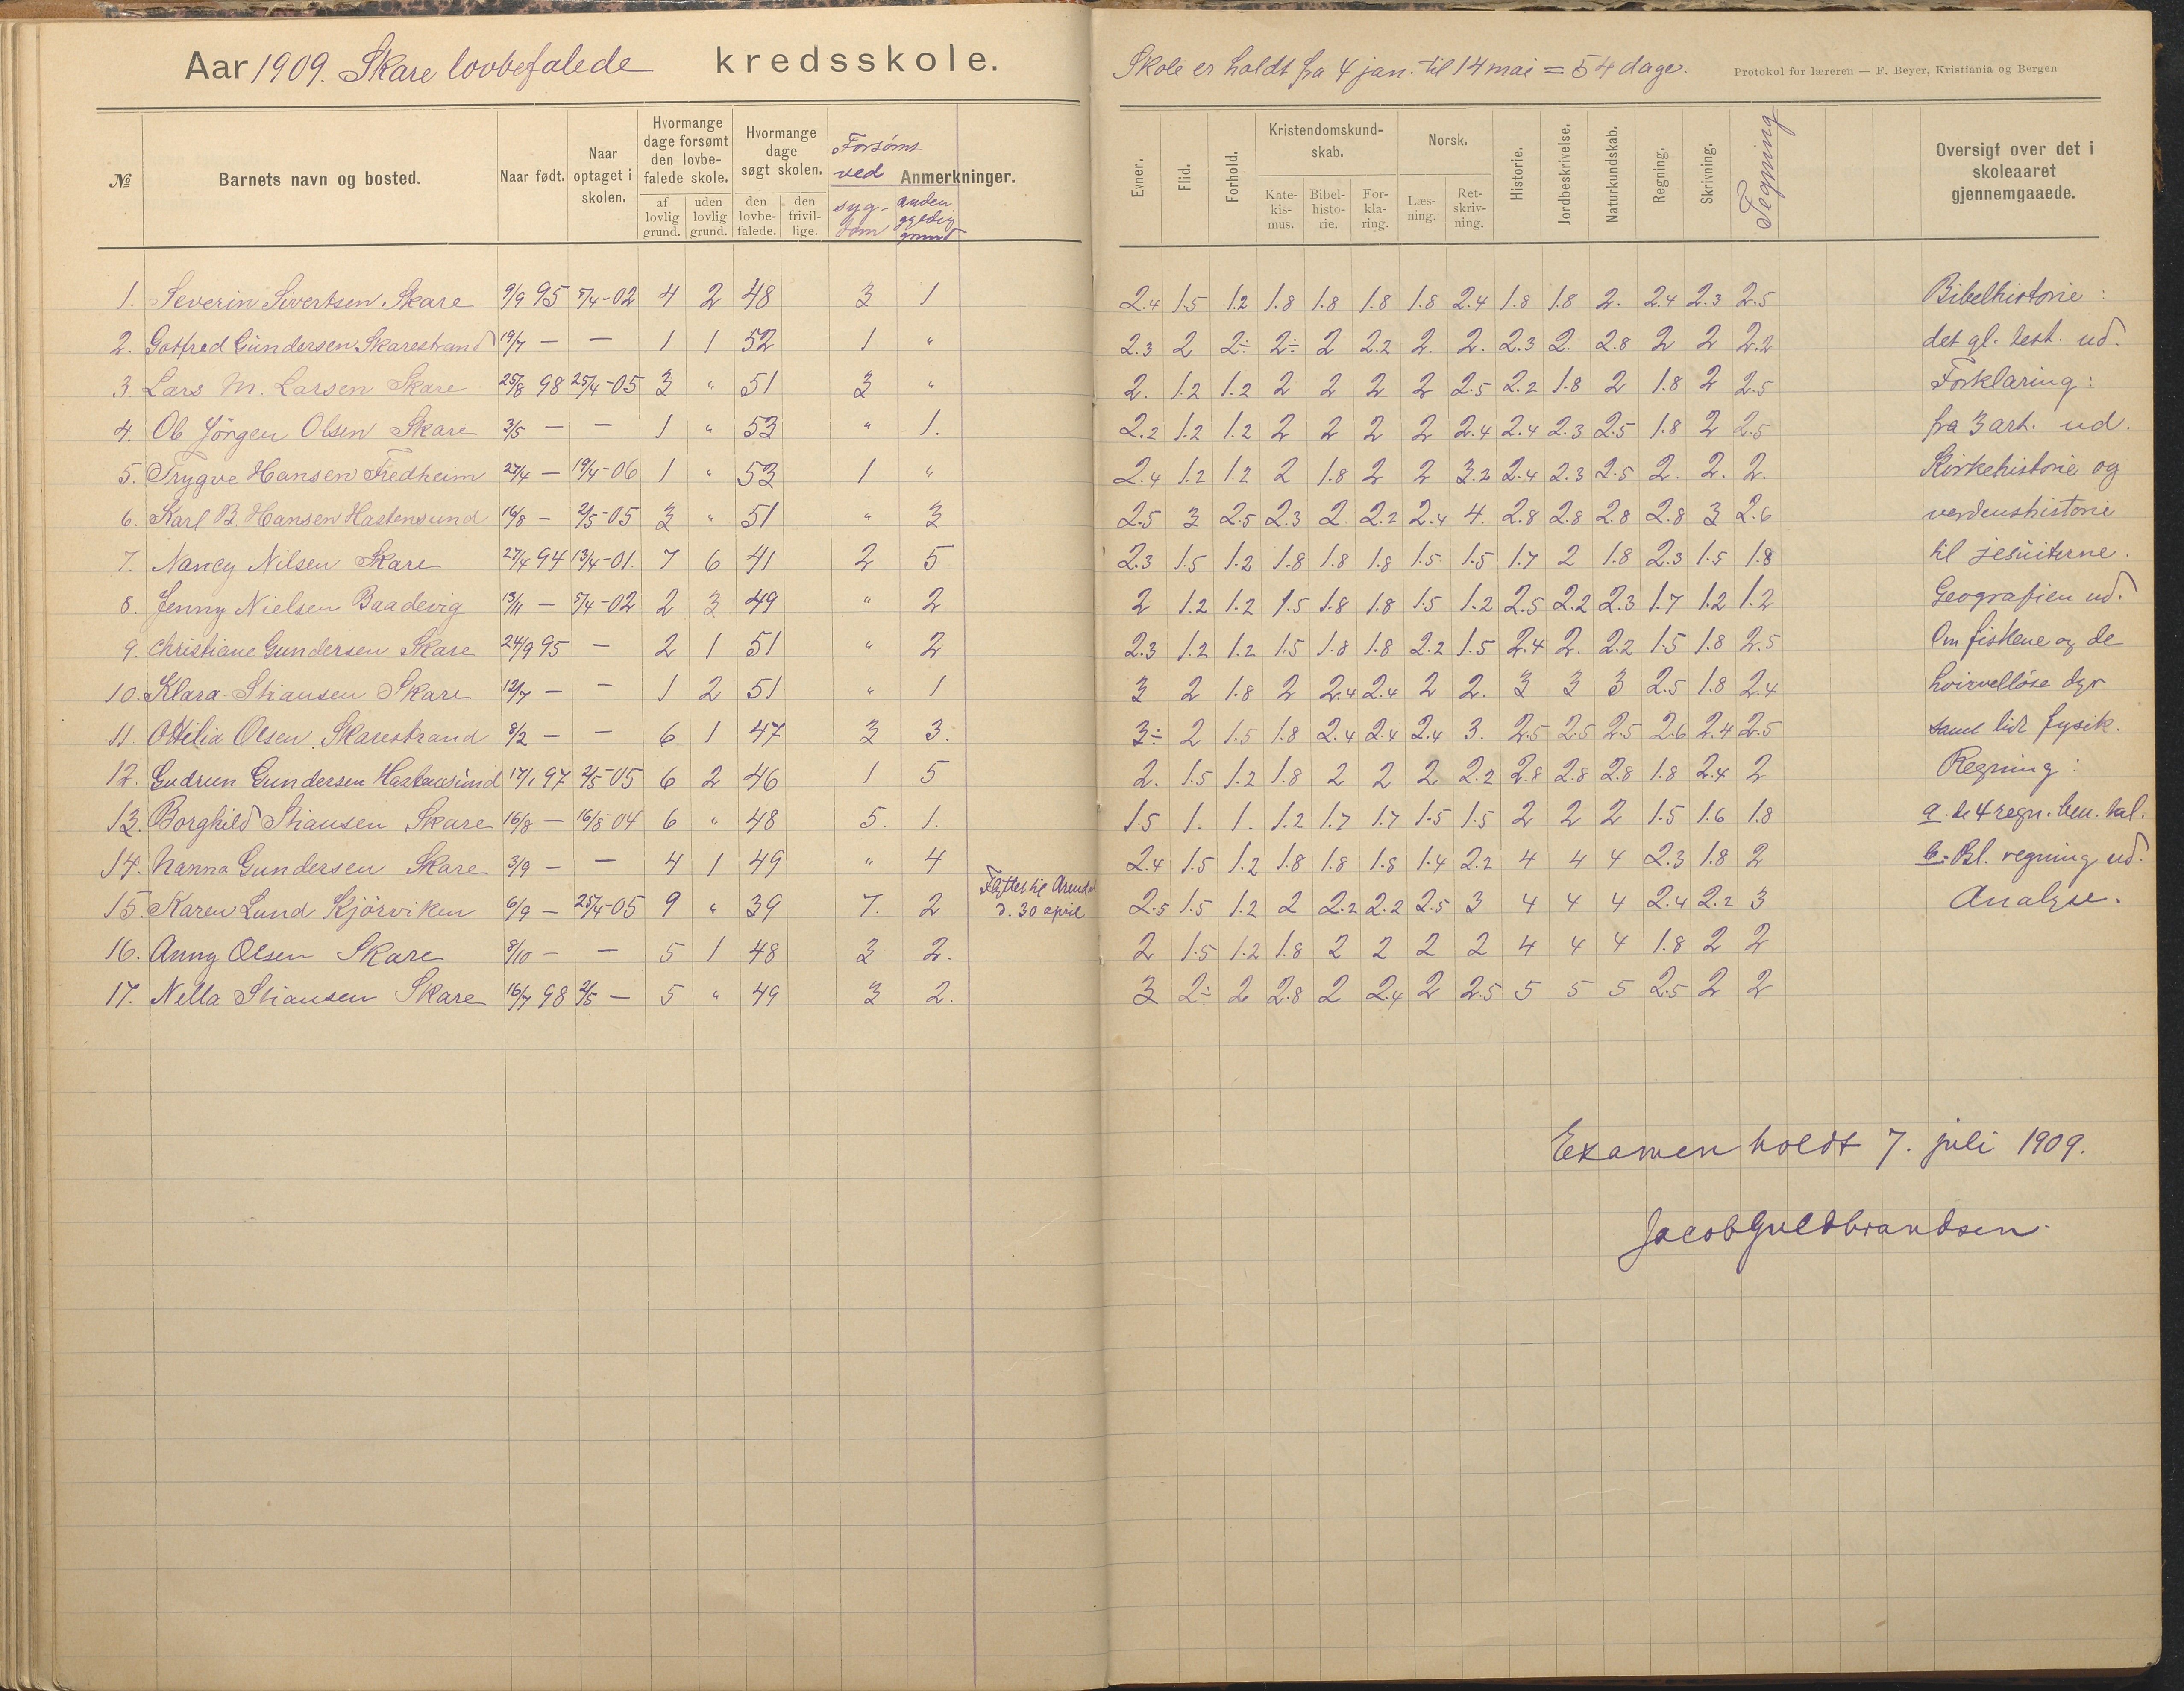 Aar 1909. Skare lovbefalede kredsskole.
№ Barnets navn og bosted. Naar født. Naar optaget i skolen. Hvormange dage forsømt den lovbefalede skole. af lovlig grund. uden lovlig grund. Hvormange dage søgt skolen. den lovbefalede. den frivillige. Anmerkninger. Forsømt ved sygdom anden gyldig grund
1. Severin Sivertsen Skare 9/9 95 5/4-02 4 2 48 3 1
2. Gotfred Gundersen Skarestrand 19/7 — — 1 1 52 1 "
3. Lars M. Larsen Skare 25/8 98 25/4-05 3 " 51 3 "
4. Ole Jörgen Olsen Skare 3/5 — — 1 " 53 " 1.
5. Trygve Hansen Fredheim 27/4 — 19/4-06 1 " 53 1 "
6. Karl B. Hansen Hastensund 16/8 — 2/5-05 3 " 51 " 3
7. Nancy Nilsen Skare 27/4 94 13/4-01. 7 6 41 2 5
8. Jenny Nielsen Baadevig 13/11 — 5/4-02 2 3 49 " 2
9. Christiane Gundersen Skare 24/9 95 — 2 1 51 " 2
10. Klara Stiansen Skare 12/7 — — 1 2 51 " 1
11. Ottilia Olsen Skarestrand 8/2 — — 6 1 47 3 3.
12. Gudrun Gundersen Hastensund 17/1 97 2/5-05 6 2 46 1 5
13. Borghild Stiansen Skare 16/8 — 16/5-04 6 " 48 5. 1.
14. Nanna Gundersen Skare 3/9 — — 4 1 49 " 4
15. Karen Lund Kjörviken 6/9 — 25/4-05 9 " 39 7. 2 Flyttet til Arendal d. 30 april
16. Anny Olsen Skare 8/10 — — 5 1 48 3 2.
17. Nella Stiansen Skare 16/7 98 2/5 — 5 " 49 3 2.
Skole er holdt fra 4 jan. til 14 mai = 54 dage. Protokol for læreren — F. Beyer, Kristiania og Bergen
Evner. Flid. Forhold. Kristendomskundskab. Katekismus. Bibelhistorie. Forklaring. Norsk. Læsning. Retskrivning. Historie. Jordbeskrivelse. Naturkundskab. Regning. Skrivning. Tegning Oversigt over det i skoleaaret gjennemgaaede.
2.4 1.5 1.2 1.8 1.8 1.8 1.8 2.4 1.8 1.8 2. 2.4 2.3 2.5 Bibelhistorie:
2.3 2 2÷ 2÷ 2 2.2 2. 2. 2.3 2. 2.8 2 2 2.2 det gl. test. ud.
2. 1.2 1.2 2 2 2 2 2.5 2.2 1.8 2 1.8 2 2.5 Forklaring:
2.2 1.2 1.2 2 2 2 2 2.4 2.4 2.3 2.5 1.8 2 2.5 fra 3 art. ud.
2.4 1.2 1.2 2 1.8 2 2 3.2 2.4 2.3 2.5 2. 2. 2. Kirkehistorie og
2.5 3 2.5 2.3 2 2.2 2.4 4. 2.8 2.8 2.8 2.8 3 2.6 verdenshistorie
2.3 1.5 1.2 1.8 1.8 1.8 1.5 1.5 1.7 2 1.8 2.3 1.5 1.8 til jesuiterne.
2 1.2 1.2 1.5 1.8 1.8 1.5 1.2 2.5 2.2 2.3 1.7 1.2 1.2 Geografien ud.
2.3 1.2 1.2 1.5 1.8 1.8 2.2 1.5 2.4 2. 2.2 1.5 1.8 2.5 Om fiskene og de
3 2 1.8 2 2.4 2.4 2 2. 3 3 3 2.5 1.8 2.4 hvirvellöse dyr
3÷ 2 1.5 1.8 2.4 2.4 2.4 3. 2.5 2.5 2.5 2.6 2.4 2.5 samt lidt fysik.
2. 1.5 1.2 1.8 2 2 2 2.2 2.8 2.8 2.8 1.8 2.4 2 Regning:
1.5 1. 1. 1.2 1.7 1.7 1.5 1.5 2 2 2 1.5 1.6 1.8 a. de 4 regn. ben. tal.
2.4 1.5 1.2 1.8 1.8 1.8 1.4 2.2 4 4 4 2.3 1.8 2 b. Bl. regning ud.
2.5 1.5 1.2 2 2.2 2.2 2.5 3 4 4 4 2.4 2.2 3 Analyse.
2 1.5 1.2 1.8 2 2 2 2 4 4 4 1.8 2 2
3 2÷ 2 2.8 2 2.4 2 2.5 5 5 5 2.5 2 2
Examen holdt 7. juli 1909.
Jacob Guldbrandsen.